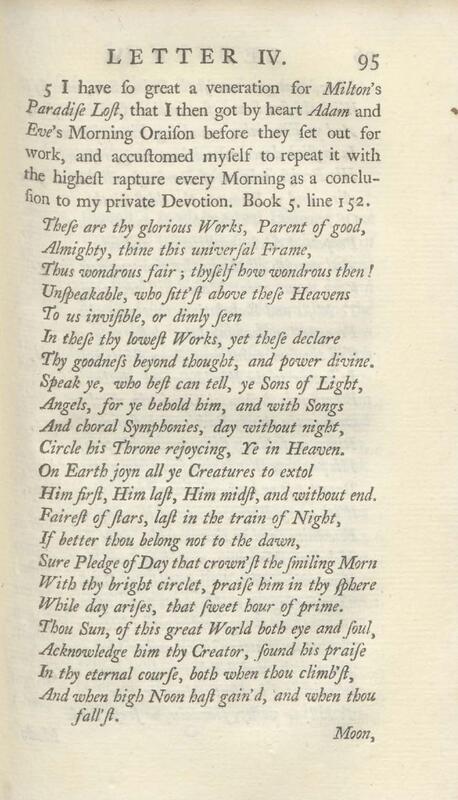 LETTER IV. 95
5 I have ſo great a veneration for Milton's
Paradiſe Loſt, that I then got by heart Adam and
Eve's Morning Oraiſon before they ſet out for
work, and accuſtomed myſelf to repeat it with
the higheſt rapture every Morning as a conclu-
ſion to my private Devotion. Book 5. line 152.
Theſe are thy glorious Works, Parent of good,
Almighty, thine this univerſal Frame,
Thus wondrous fair; thyſelf how wondrous then!
Unſpeakable, who ſitt'ſt above theſe Heavens
To us inviſible, or dimly ſeen
In theſe thy loweſt Works, yet theſe declare
Thy goodneſs beyond thought, and power divine.
Speak ye, who beſt can tell, ye Sons of Light,
Angels, for ye behold him, and with Songs
And choral Symphonies, day without night,
Circle his Throne rejoycing, Ye in Heaven.
On Earth joyn all ye Creatures to extol
Him firſt, Him laſt, Him midſt, and without end.
Faireſt of ſtars, laſt in the train of Night,
If better thou belong not to the dawn,
Sure Pledge of Day that crown'ſt the ſmiling Morn
With thy bright circlet, praiſe him in thy ſphere
While day ariſes, that ſweet hour of prime.
Thou Sun, of this great World both eye and ſoul,
Acknowledge him thy Creator, ſound his praiſe
In thy eternal courſe, both when thou climb'ſt,
And when high Noon haſt gain'd, and when thou
fall'ſt.
Moon,